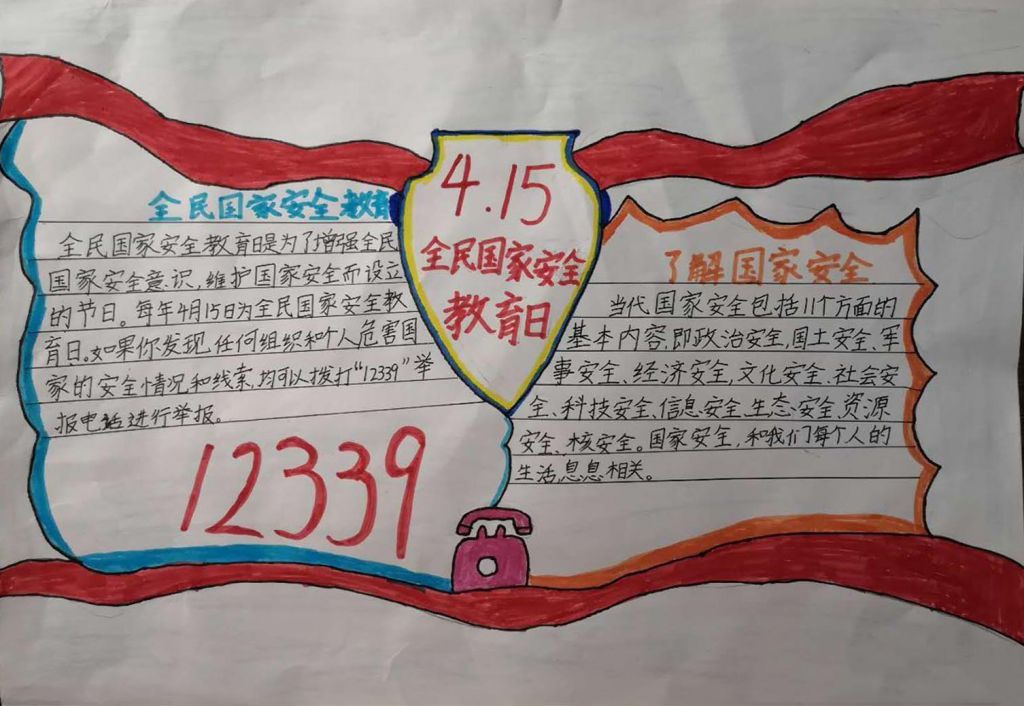 4.15
全民国家安全
教育日
全民国家安全教育
全民国家安全教育日是为了增强全民
国家安全意识,维护国家安全而设立
的节日。每年4月15日为全民国家安全教
育日。如果你发现任何组织和个人危害国
家的安全情况和线索,均可以拨打“12339”举
报电话进行举报。
12339
了解国家安全
当代国家安全包括11个方面的
基本内容,即政治安全、国土安全、军
事安全、经济安全、文化安全、社会安
全、科技安全、信息安全、生态安全、资源
安全、核安全。国家安全,和我们每个人的
生活,息息相关。